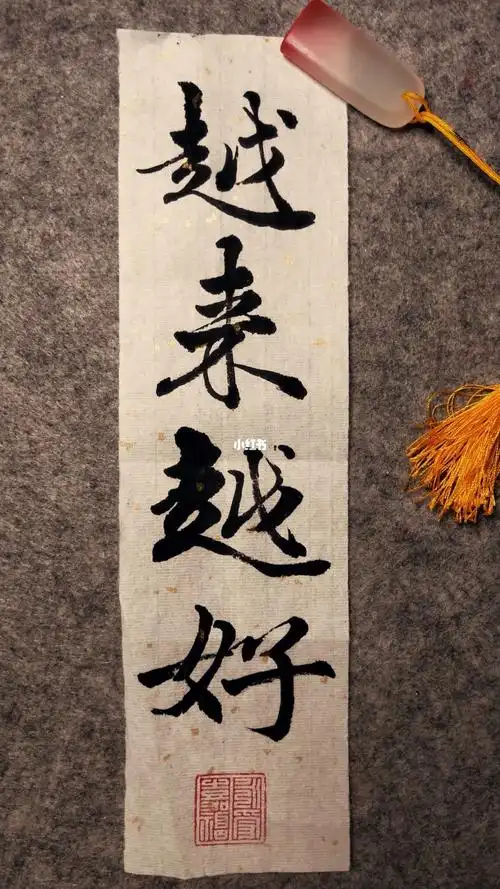 越来越好
小红书